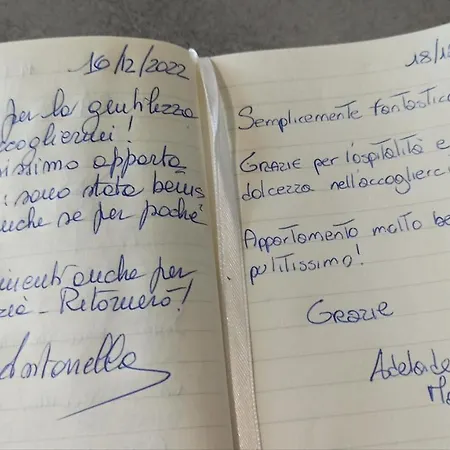 16/12/2022
per la gentilezza
ccoglierci!
issimo apparta
: sono stata benis
nche se per poche
imenti anche per
Ritornerò!
Antonella
18/12
Semplicemente fantastico
Grazie per l'ospitalità e
dolcezza nell'accoglierci
Appartamento molto be
pulitissimo!
Grazie
Adelaide
Ma